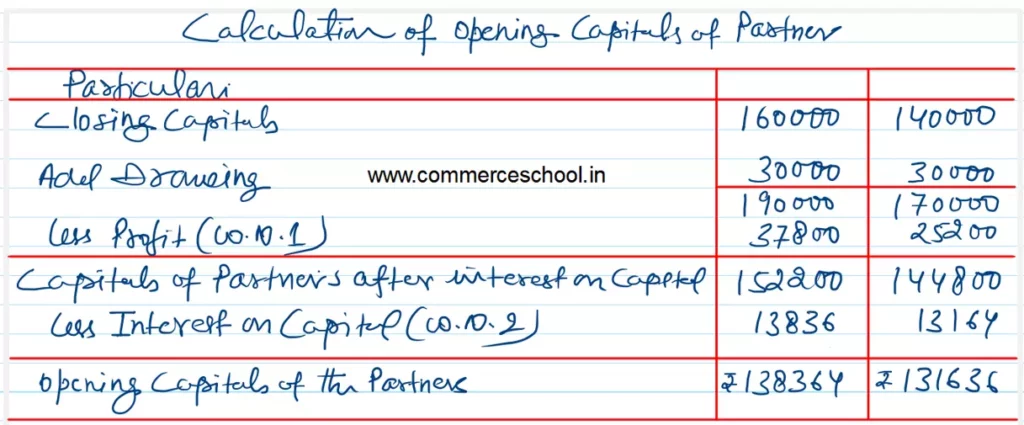 Calculation of Opening Capitals of Partner
Particulars
Closing Capitals 160000 140000
Add Drawing 30000 30000
www.commerceschool.in
190000 170000
Less Profit (W.N.1) 37800 25200
Capitals of Partners after interest on Capital 152200 144800
Less Interest on Capital (W.N.2) 13836 13164
Opening Capitals of the Partners ₹138364 ₹131636